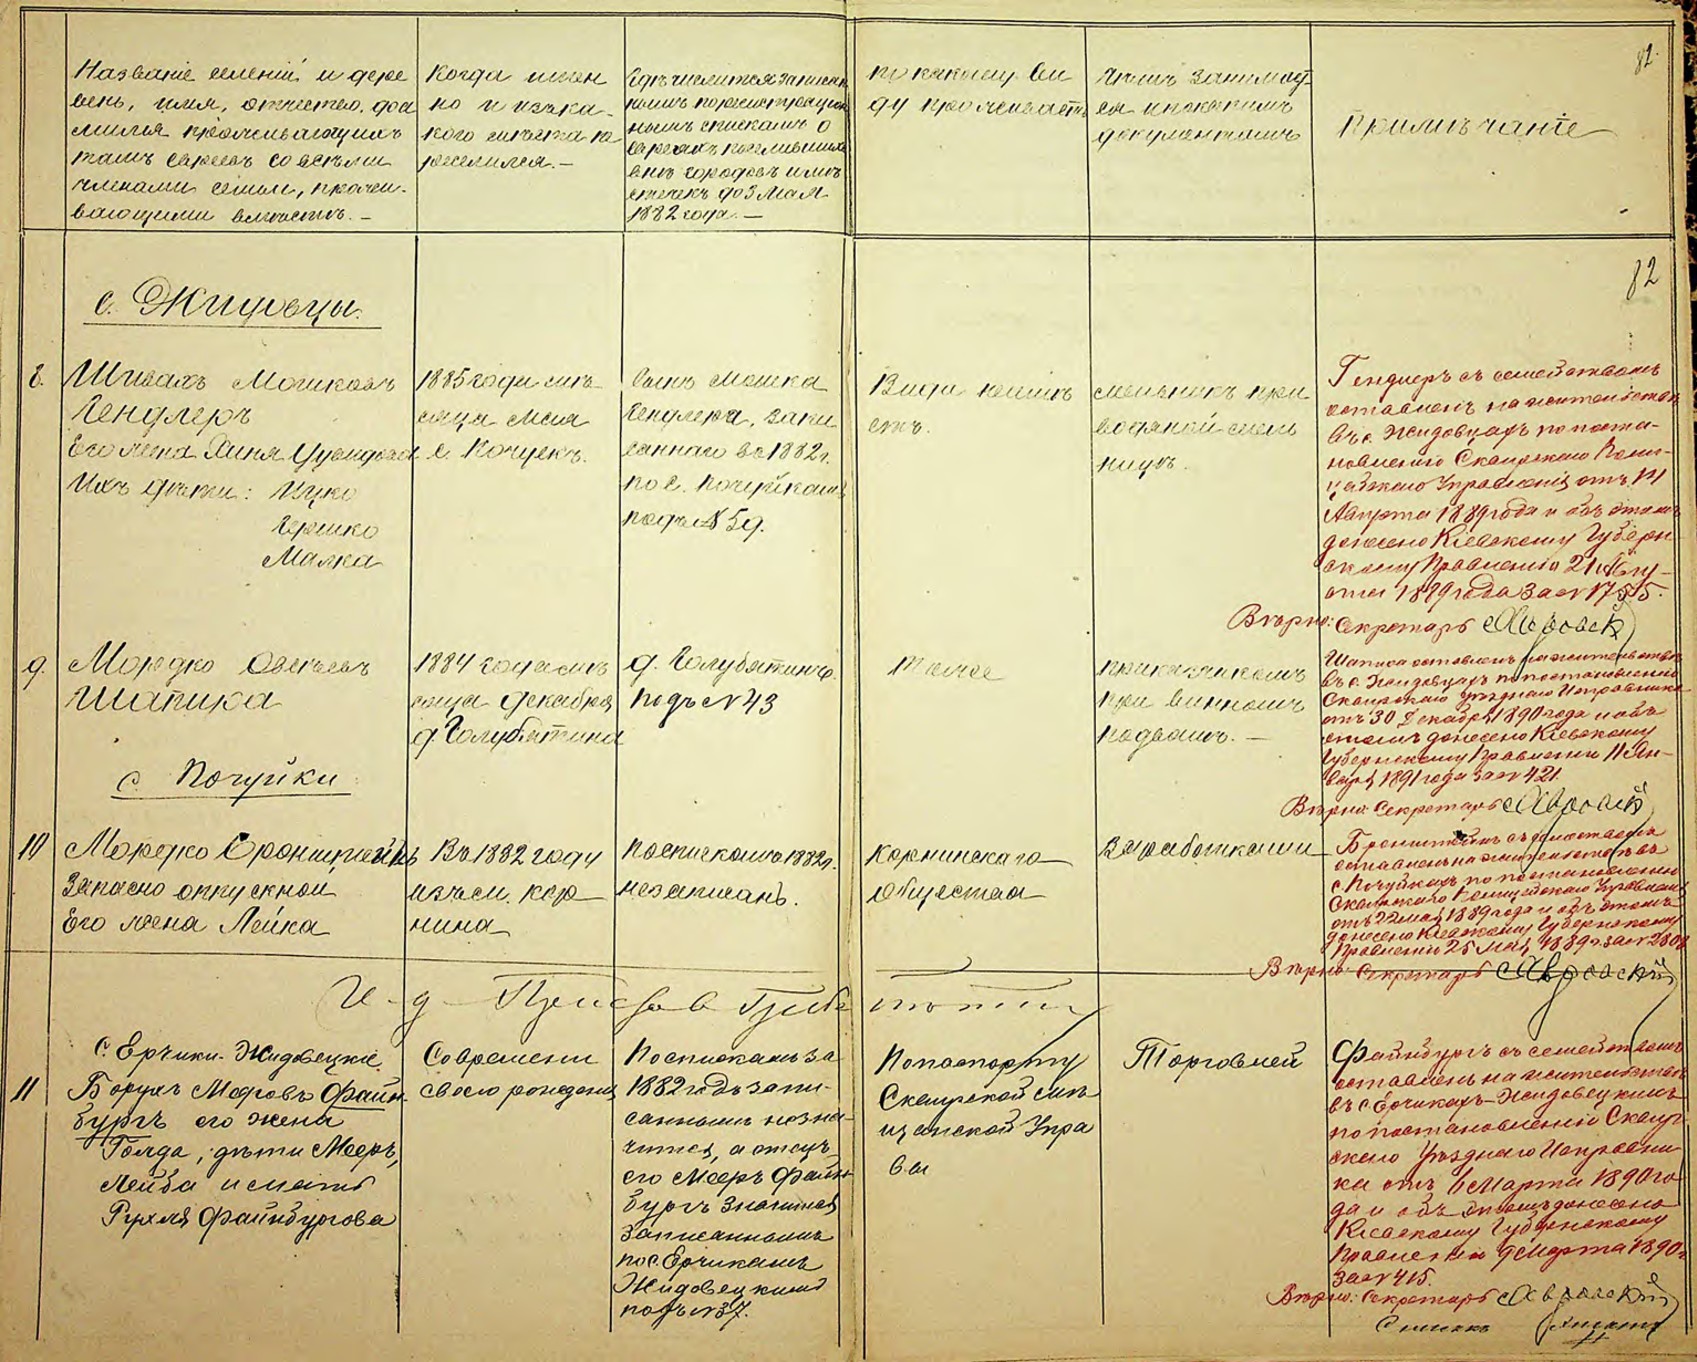 82.
Названіе селеній и дере
вень, имя, отчество, фа
милія проживающихъ
тамъ евреевъ со всѣми
членами семьи, прожи-
вающими вмѣстѣ. –
Когда имен
но и изъ ка-
кого мѣста по
селился. –
Гдѣ числится записан
нымъ по регистраціон
нымъ спискамъ о
евреяхъ поселившихся
внѣ городовъ и мѣс
течекъ до 3 Мая
1882 года. –
по какому ви
ду проживаетъ
чѣмъ занимает
ся и по какимъ
документамъ
Примѣчаніе
82
с. Жидовцы.
8.
Шивахъ Мошковъ
Гендлеръ
Его жена Хиня
Ихъ дѣти: Ицко
Гершко
Малка
1885 года мѣ
сяца Мая
с. Почуекъ.
Сынъ Мошка
Гендлера, запи
саннаго въ 1882 г.
по с. Почуйкамъ
подъ № 59.
Вида неимѣ
етъ.
мельникъ при
водяной мель
ницѣ.
Гендлеръ съ семействомъ
оставленъ на жительствѣ
въ с. Жидовцахъ по поста-
новленію Сквирскаго Поли-
цейскаго Управленія отъ 14
Августа 1889 года и объ этомъ
донесено Кіевскому Губерн
скому Правленію 21 Авгу-
ста 1889 года за №
Вѣрно: Секретарь
9.
Мордко
Шапира
1884 года мѣ
сяца Декабря
д. Голубятина
д. Голубятинъ
подъ № 43
Тоже
прикащикомъ
при винномъ
подвалѣ. –
Шапира оставленъ на жительствѣ
въ с. Жидовцахъ по постановленію
Сквирскаго Уѣзднаго Исправника
отъ 30 Декабря 1890 года и объ
этомъ донесено Кіевскому
Губернскому Правленію 11 Ян-
варя 1891 года за № 421.
Вѣрно: Секретарь
с. Почуйки
10
Мордко Бронштейнъ
Запасно отпускной
Его жена Лейка
Въ 1882 году
изъ м. Кор
нина
По спискамъ 1882 г.
незаписанъ.
Корнинскаго
Общества
Заработками
Бронштейнъ съ семействомъ
оставленъ на жительствѣ въ
с. Почуйкахъ по постановленію
Сквирскаго Полицейскаго Управленія
отъ 22 мая 1889 года и объ этомъ
донесено Кіевскому Губернскому
Правленію 25 Мая 1889 г. за №
Вѣрно: Секретарь
И. д. Пристава
с. Ерчики-Жидовецкіе.
11
Борухъ Мееровъ Файн-
бургъ его жена
Голда, дѣти Мееръ,
Лейба и мать
Рухля Файнбургова
Со времени
своего рожденія
По спискамъ за
1882 годъ запи-
саннымъ незна-
чится, а отецъ
его Мееръ Файн
бургъ значится
записаннымъ
по с. Ерчикамъ
Жидовецкимъ
подъ № 37.
По паспорту
Сквирской мѣ
щанской Упра
вы
Торговлей
Файнбургъ съ семействомъ
оставленъ на жительствѣ
въ с. Ерчикахъ-Жидовецкихъ
по постановленію Сквир-
скаго Уѣзднаго Исправни
ка отъ 6 Марта 1890 го
да и объ этомъ донесено
Кіевскому Губернскому
Правленію 9 Марта 1890 г.
за № 415.
Вѣрно: Секретарь